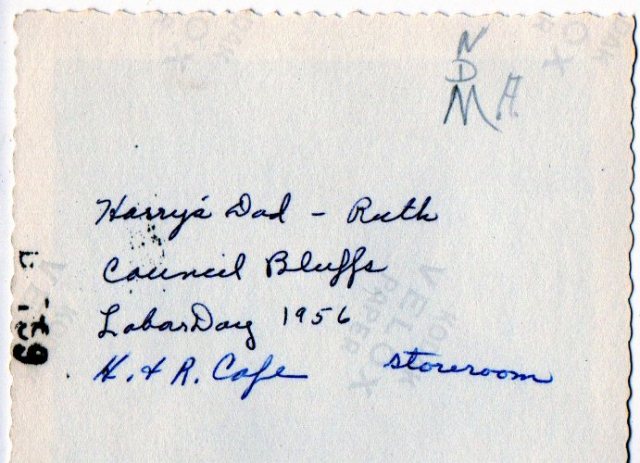 N
D
M.A.
Harry's Dad - Ruth
Council Bluffs
Labor Day 1956
H. & R. Cafe storeroom
KODAK
VELOX
PAPER